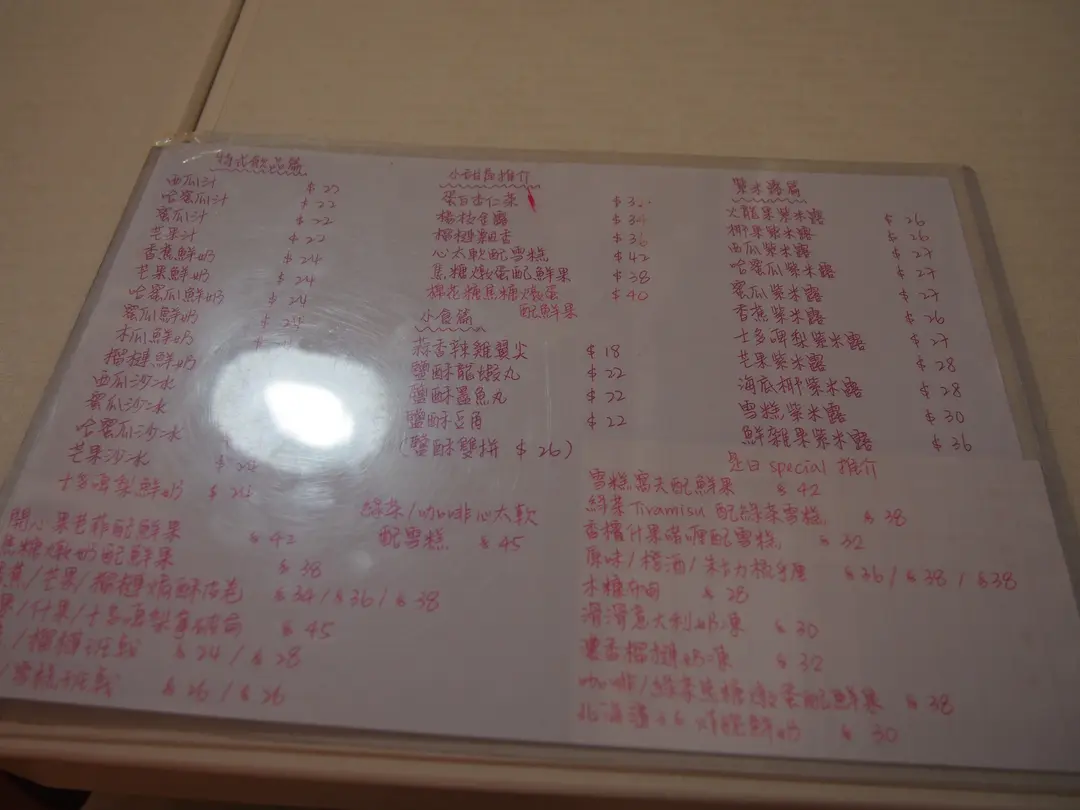 特式飲品篇
西瓜汁 $22
哈蜜瓜汁 $22
蜜瓜汁 $22
芒果汁 $22
香蕉鮮奶 $24
芒果鮮奶 $24
哈蜜瓜鮮奶 $24
蜜瓜鮮奶
木瓜鮮奶
榴槤鮮奶
西瓜沙冰
蜜瓜沙冰
哈蜜瓜沙冰
芒果沙冰 $24
士多啤梨鮮奶
小甜品推介
蛋白杏仁茶
楊枝金露 $34
榴槤飄香 $36
心太軟配雪糕 $42
焦糖燉蛋配鮮果 $38
棉花糖焦糖燉蛋 $40
配鮮果
小食篇
蒜香辣雞翼尖 $18
鹽酥龍蝦丸 $22
鹽酥墨魚丸 $22
鹽酥豆角 $22
(鹽酥雙拼 $26)
紫米露篇
火龍果紫米露 $26
椰果紫米露 $26
西瓜紫米露 $27
哈蜜瓜紫米露 $27
蜜瓜紫米露 $27
香蕉紫米露 $26
士多啤梨紫米露 $27
芒果紫米露 $28
海底椰紫米露 $28
雪糕紫米露 $30
鮮雜果紫米露 $36
開心果芭菲配鮮果 $42
焦糖燉奶配鮮果 $38
蕉/芒果/榴槤焗酥皮卷 $34/$36/$38
/什果/士多啤梨拿破崙 $45
/榴槤班戟 $24/$28
/雪糕班戟 $26/$26
綠茶/咖啡心太軟
配雪糕 $45
是日special推介
雪糕窩夫配鮮果 $42
綠茶Tiramisu配綠茶雪糕 $38
香檳什果啫喱配雪糕 $32
原味/橙酒/朱古力梳乎厘 $36/$38/$38
木糠布甸 $28
滑滑意大利奶凍 $30
濃香榴槤奶凍 $32
咖啡/綠茶焦糖燉蛋配鮮果 $38
北海道3.6炸脆鮮奶 $30